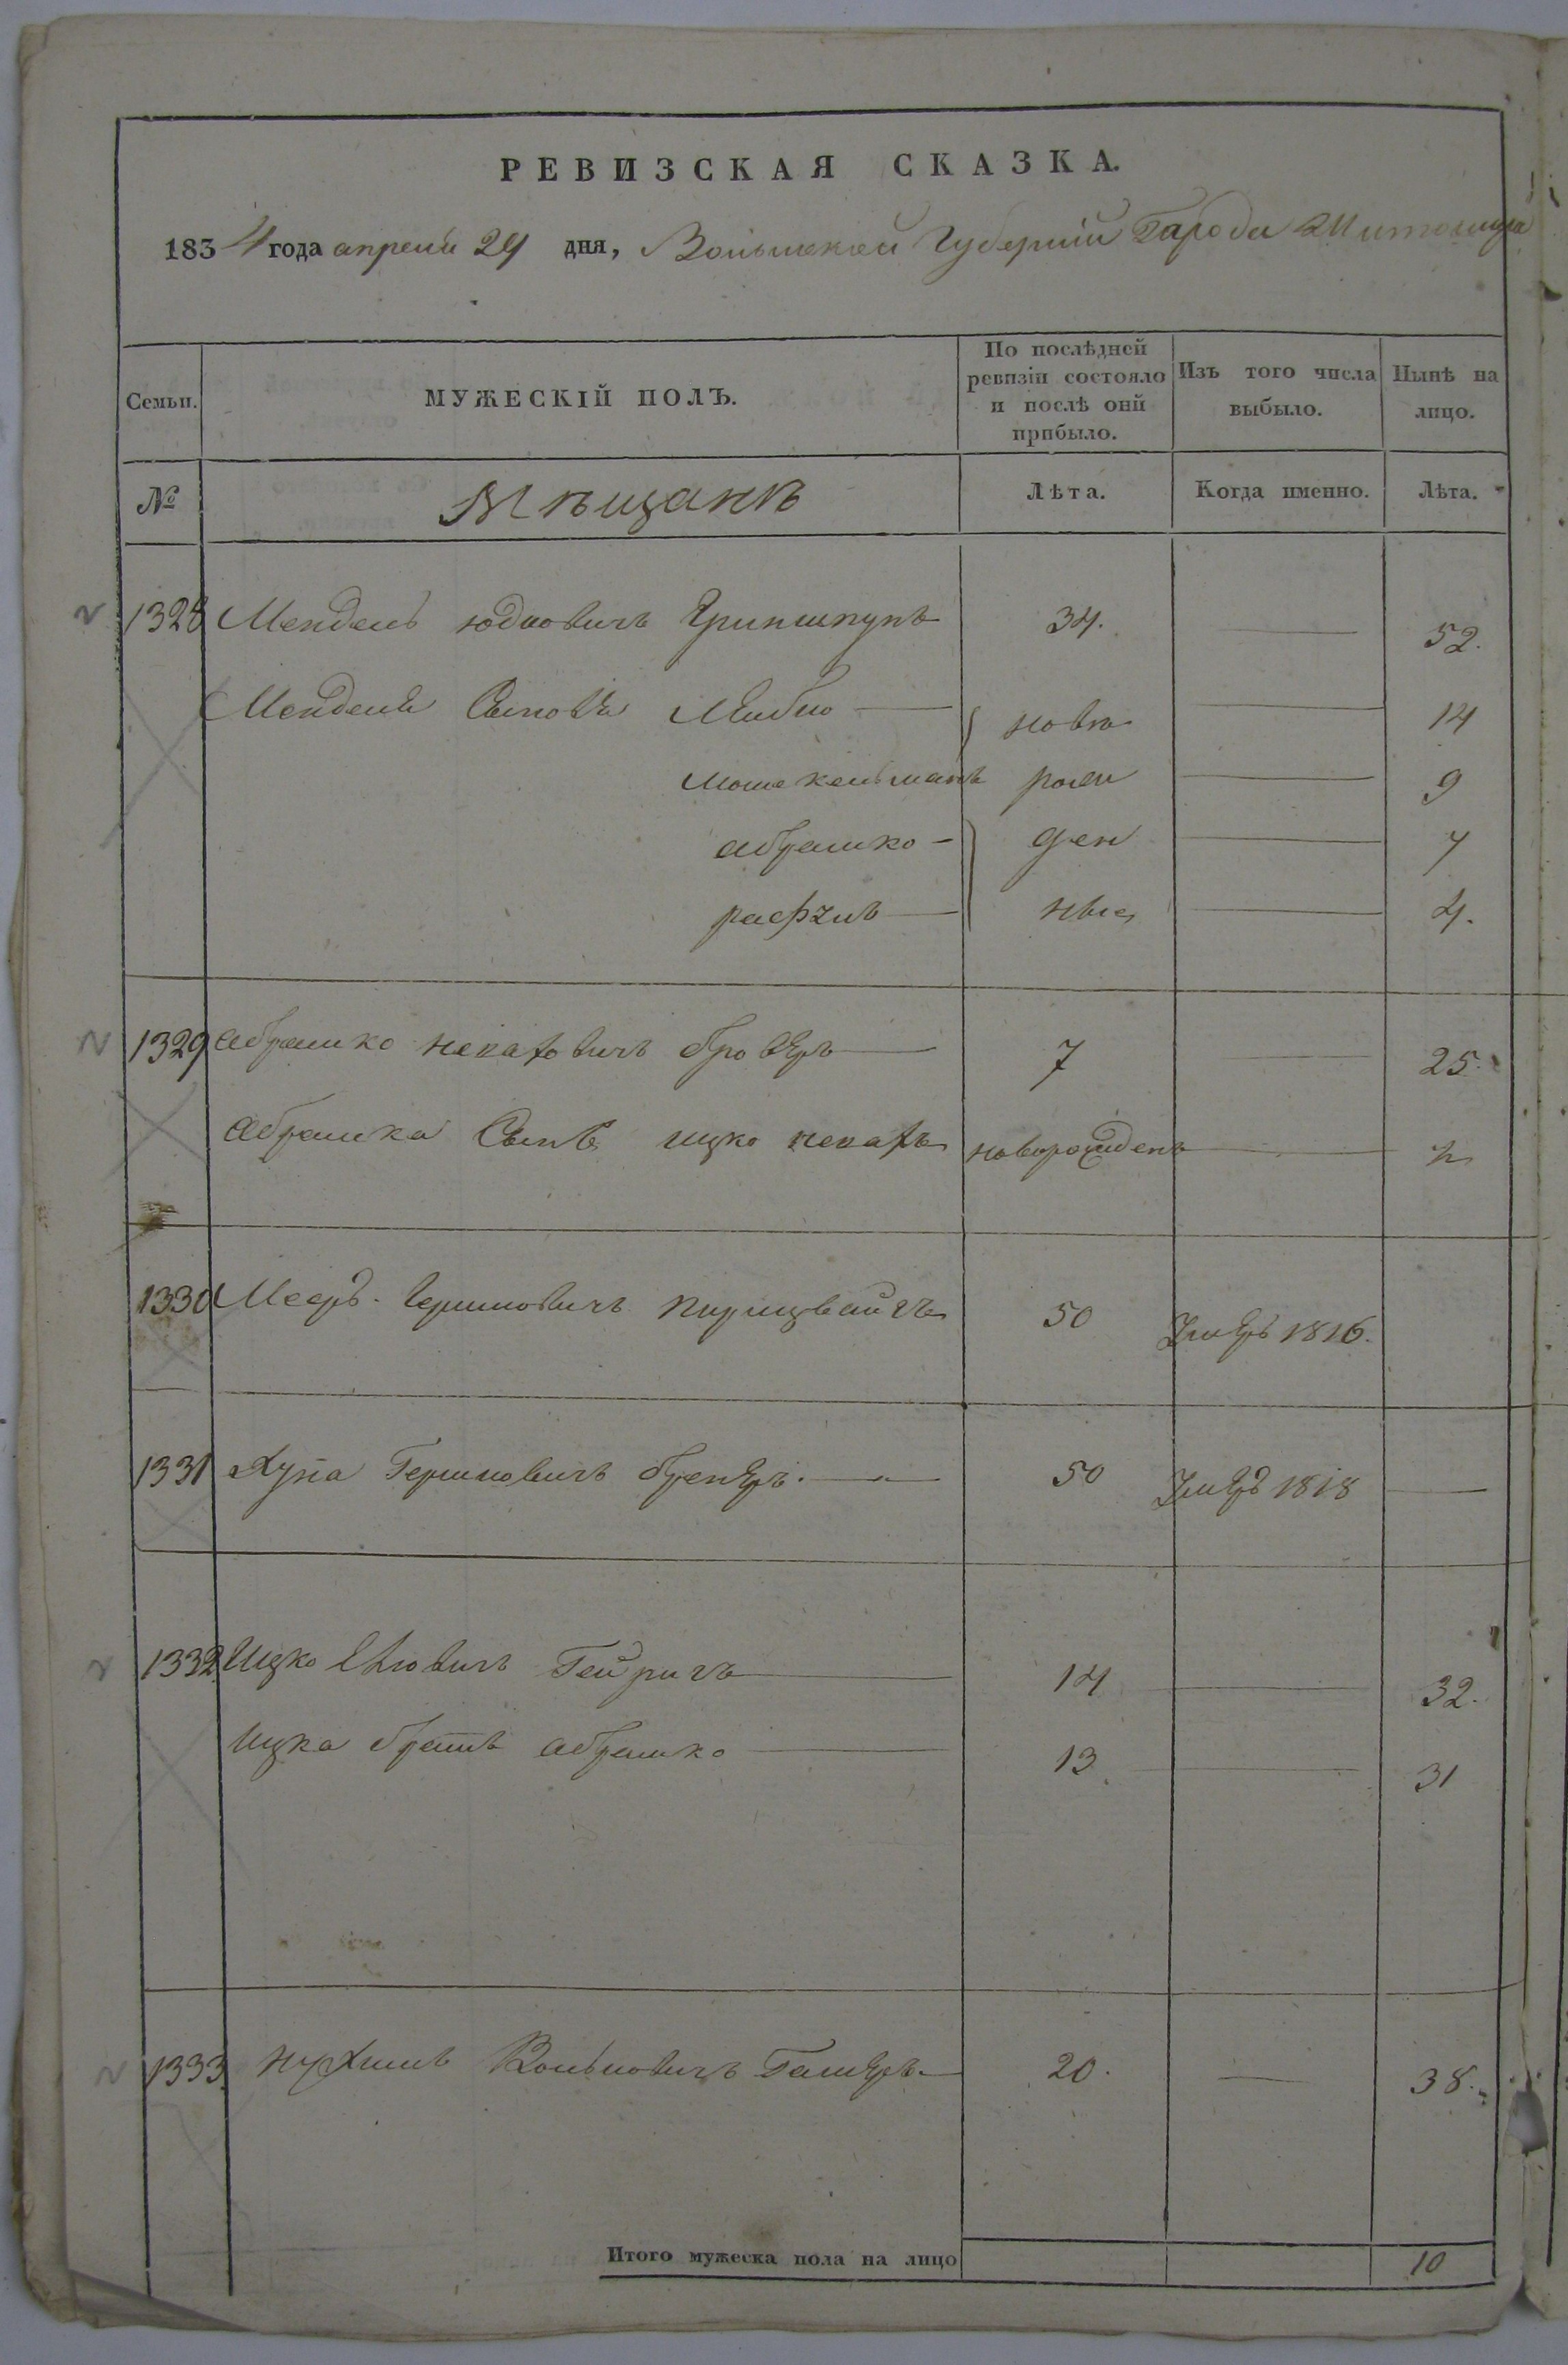 РЕВИЗСКАЯ СКАЗКА.
1834 года апреля 29 дня, Волынской Губернии Города Житомира
Семьи. МУЖЕСКІЙ ПОЛЪ. По послѣдней ревизіи состояло и послѣ оній прибыло. Изъ того числа выбыло. Нынѣ на лицо.
№ Мѣщанѣ Лѣта. Когда именно. Лѣта.
1328 Мендель юдковичъ Гриншпунъ 34. 52.
Менделя Сыновя Лейбко ново 14
Мошекельманъ рож 9
абрамко ден 7
рафулъ ные 4.
1329 абрамко Бровѣръ 7 25.
абрамка Сынъ ицко новорожденъ
1330 Мееръ Гершковичъ 50 Умеръ 1816.
1331 Хуна Гершковичъ 50 Умеръ 1818
1332 Ицко 14 32.
Ицка братъ абрамко 13 31
1333 Нухимъ Вольковичъ 20. 38.
Итого мужеска пола на лицо 10